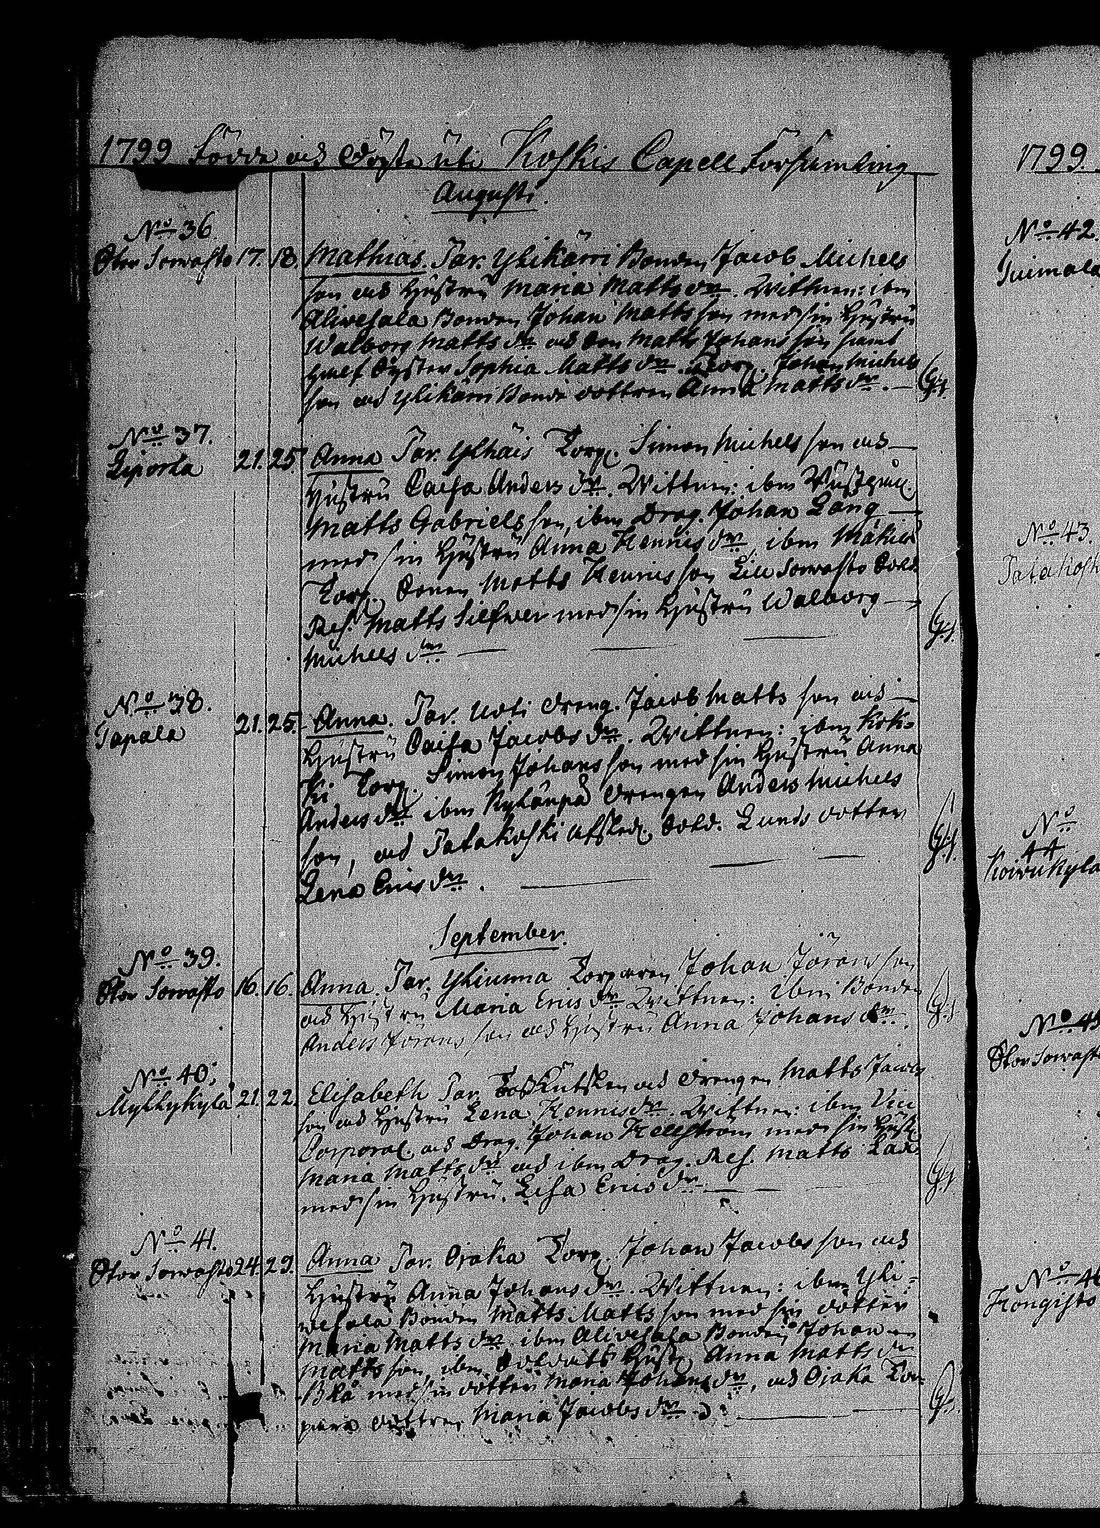 1799 Födde och Döpte uti Koskis Capell Församling
Augusti.
No 36
Stor Sorvasto 17. 18. Mathias. Par. Ylikärri Bonden Jacob Michels
son och Hustru Maria Mattsdr. Wittnen: ibm
Alivesala Bonden Johan Mattsson med sin Hustru
Walborg Mattsdr och dren Matts Johansson samt
Syster Sophia Mattsdr. Johan Michels
son och Ylikärri Bonde dottren Anna Mattsdr.
No 37.
Liporla 21. 25 Anna Par. Ylhäis Torp. Simon Michelsson och
Hustru Caisa Andersdr. Wittnen: ibm
Matts Gabrielsson, ibm Drag. Johan Lång
med sin Hustru Anna Hennisdr ibm Mäkilä
Torp. Sonen Matts Hennisson Lill Sorvasto Sold.
Res. Matts Silfwer med sin Hustru Walborg
Michelsdr
No 38.
Tapala 21. 25. Anna. Par. Uoti dreng. Jacob Mattsson och
Hustru Caisa Jacobsdr. Wittnen: ibm Kos-
ki Torp. Simon Johansson med sin Hustru Anna
Andersdr ibm Kylänpä drengen Anders Michels
son, och Patakoski afsked. Sold. Lunds dotter
Lena Ericsdr.
September.
No 39.
Stor Sorvasto 16. 16. Anna. Par. Yliuma Torparen Johan Jörans son
och Hustru Maria Ericsdr Wittnen: ibm Bonden
Anders Jöransson och Hustru Anna Johansdr.
No 40.
Myllykylä 21. 22. Elisabeth Par. drengen Matts Jacobs
son och Hustru Lena Hennisdr. Wittnen: ibm Vice
Corporal och Drag. Johan Hellström med sin Hust.
Maria Mattsdr och ibm Drag. Res. Matts
med sin Hustru. Lisa Ericsdr
No 41.
Stor Sorvasto 24. 29. Anna Par. Ojaka Torp. Johan Jacobsson och
Hustru Anna Johansdr. Wittnen: ibm Yli-
vesala Bonden Matts Mattsson med sin dotter
Maria Mattsdr ibm Alivesala Bonden Johan
Mattsson, ibm Soldats Hust. Anna Mattsdr
Blå med sin dotter Maria Johansdr, och Ojaka Tor-
pare dottren Maria Jacobsdr
1799.
No 42.
No 43.
Patakosk
No
44
Koivukylä
No 45
Stor Sorvasto
No 46
Hongisto